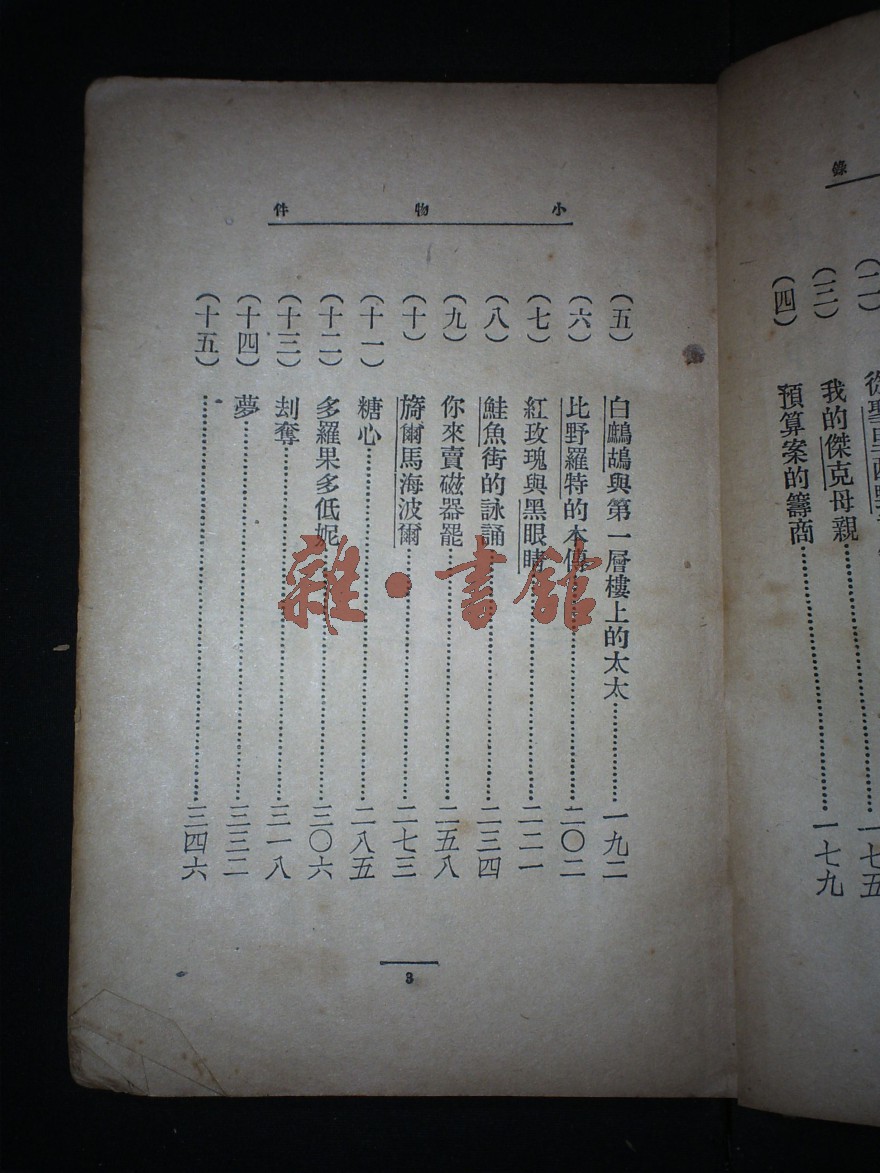 錄
(三) 我的傑克母親…………一七九
(四) 預算案的籌商…………一七九
小物件
(五) 白鷓鴣與第一層樓上的太太…………一九二
(六) 比野羅特的本傳…………二〇二
(七) 紅玫瑰與黑眼睛…………二二一
(八) 鮭魚街的詠誦…………二三四
(九) 你來賣磁器罷…………二五八
(十) 旖爾馬海波爾…………二七三
(十一) 糖心…………二八五
(十二) 多羅果多低妮…………三〇六
(十三) 刦奪…………三一八
(十四) 夢…………三三二
(十五) …………三四六
3
雜·書館